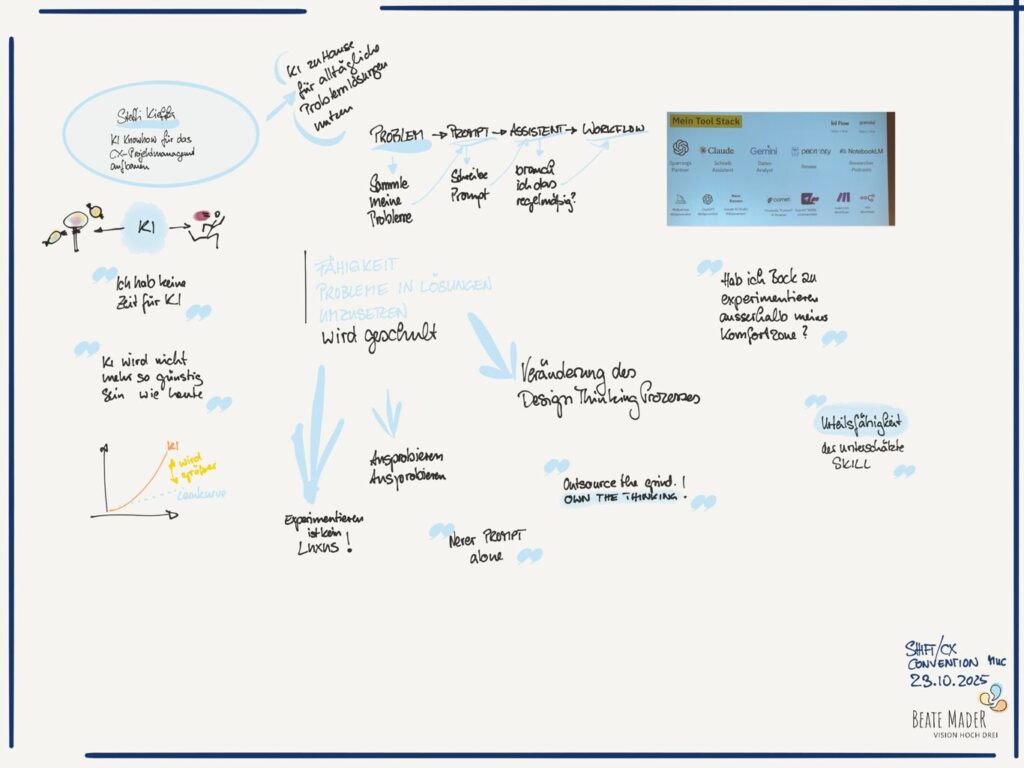 Steffi
KI Knowhow für das
CX-Projektmanagement
aufbauen
KI zu Hause
für alltägliche
Problemlösungen
nutzen
PROBLEM → PROMPT → ASSISTENT → WORKFLOW
Sammle
meine
Probleme
Schreibe
Prompt
brauch
ich das
regelmäßig?
Mein Tool Stack
Claude
Gemini
perplexity
NotebookLM
Sparrings
Partner
Schreib
Assistent
Daten
Analyst
Researcher
Podcasts
comet
KI
Ich hab keine
Zeit für KI
KI wird nicht
mehr so günstig
sein wie heute
KI
wird
größer
Lernkurve
FÄHIGKEIT
PROBLEME IN LÖSUNGEN
UMZUSETZEN
wird geschult
Experimentieren
ist kein
LUXUS!
Ausprobieren
Ausprobieren
Veränderung des
Design Thinking Prozesses
Outsource the grind!
OWN THE THINKING.
Never PROMPT
alone
Hab ich Bock zu
experimentieren
ausserhalb meiner
Komfortzone?
Urteilsfähigkeit
der unterschätzte
SKILL
SHIFT/CX
CONVENTION MUC
23.10.2025
BEATE MADER
VISION HOCH DREI